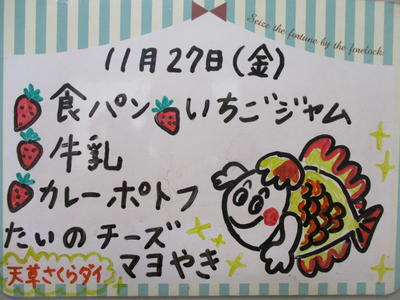 Seize the fortune by the forelock.
11月27日(金)
食パン いちごジャム
牛乳
カレーポトフ
たいのチーズ
マヨやき
天草さくらダイ